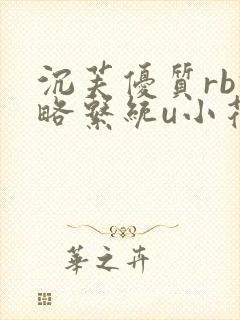 沉芙優質rb
略繫統u小花
華之卉